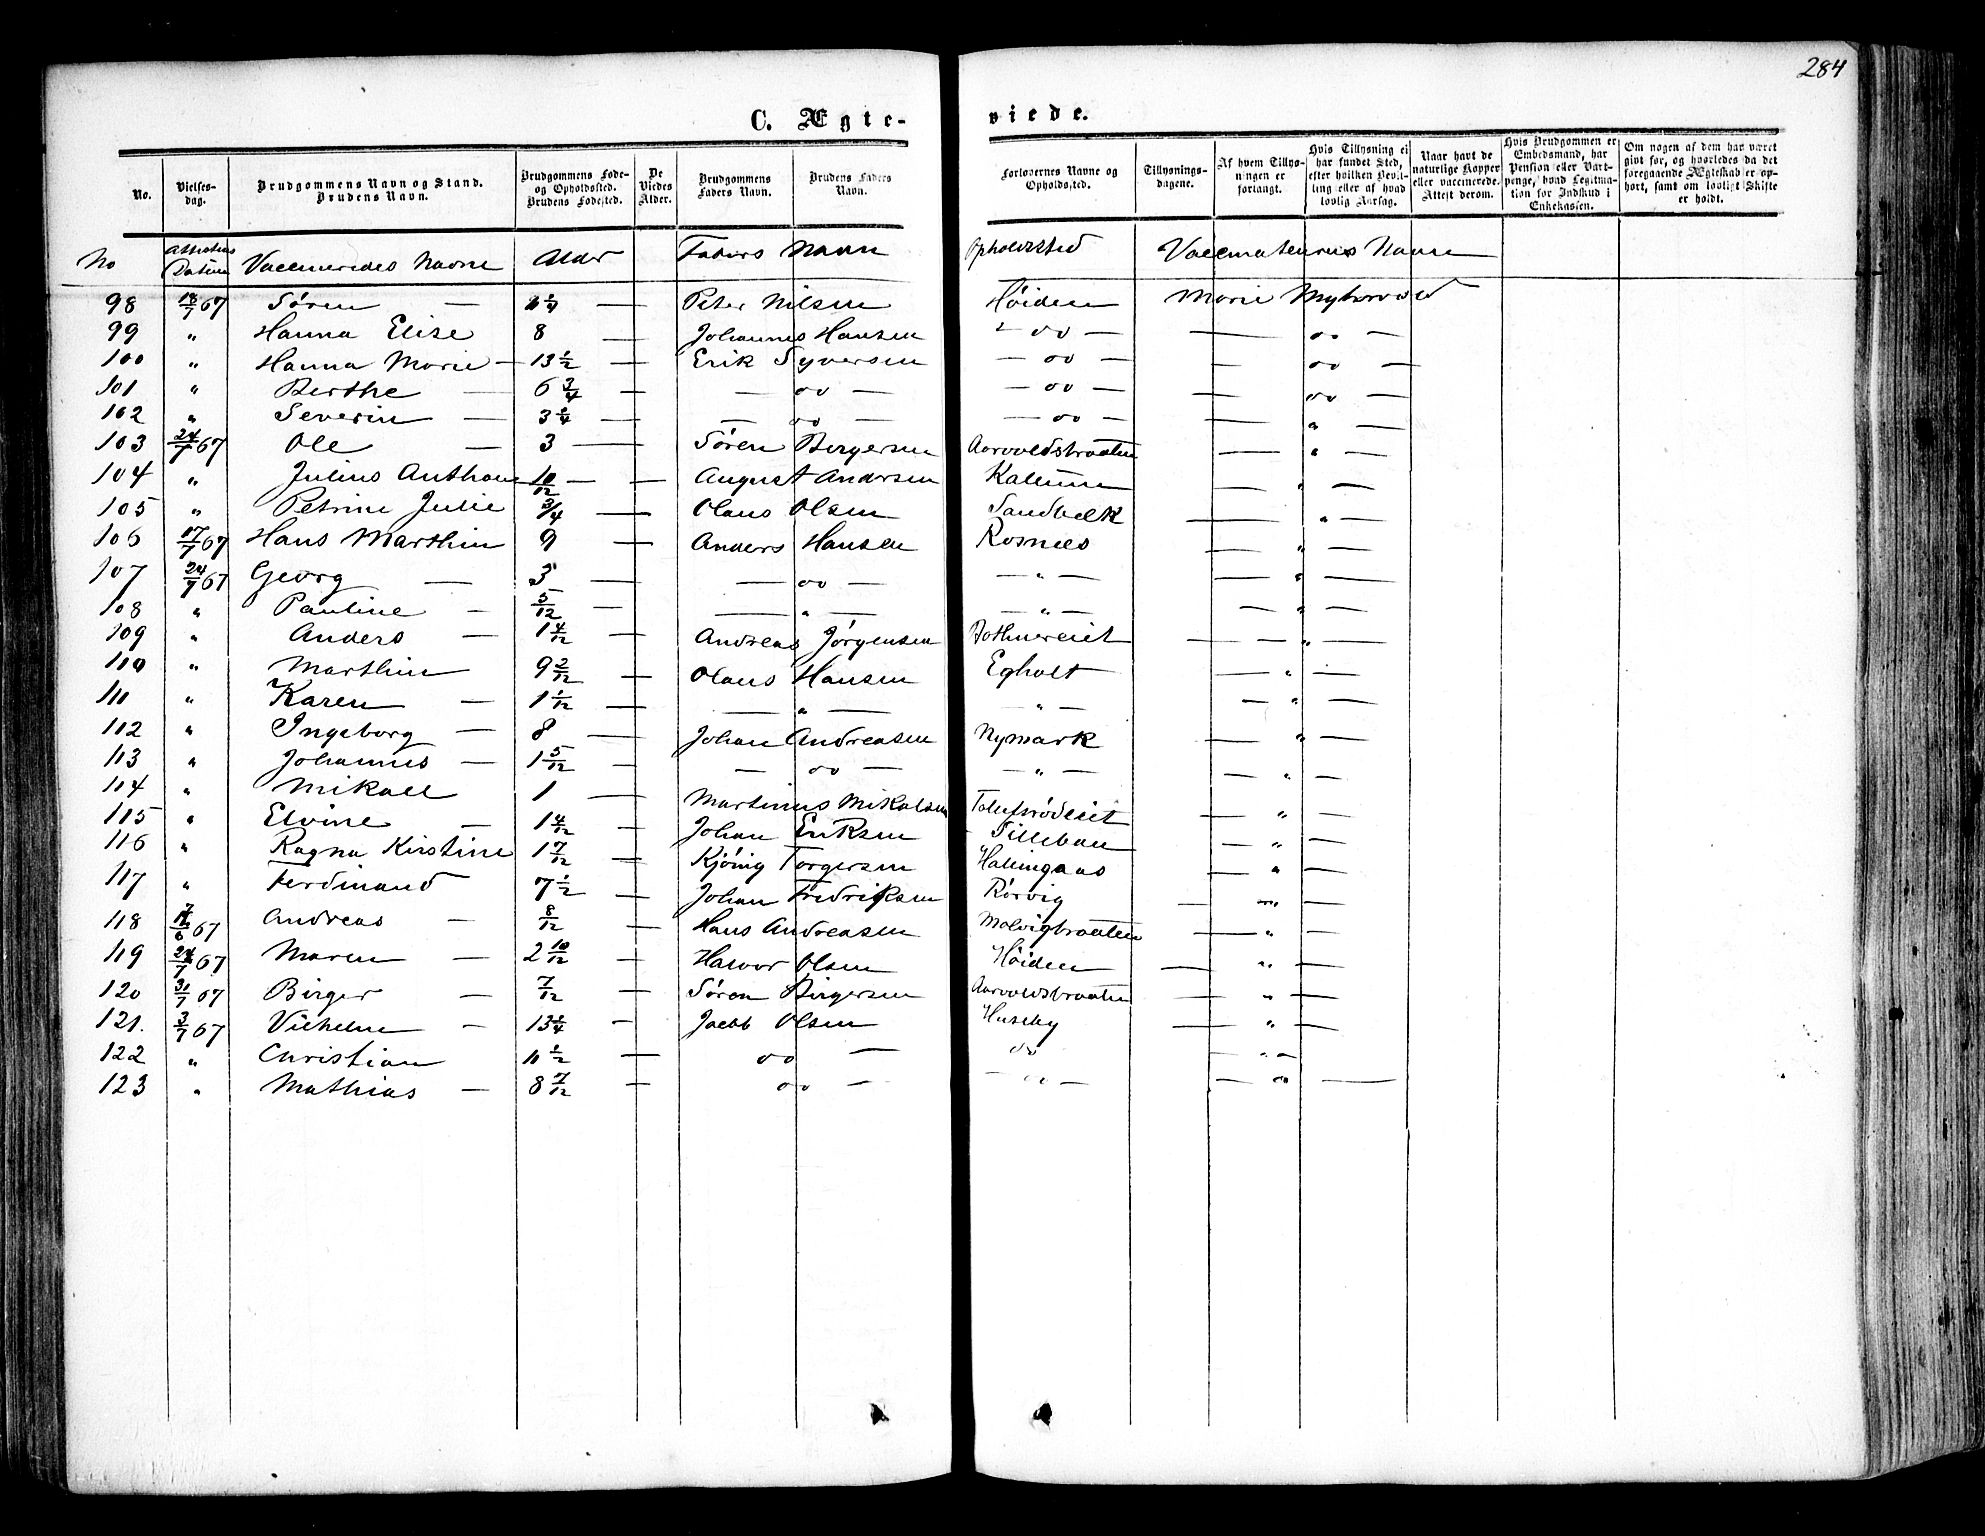 284
C. Ægte- viede.
No. | Vielses-dag. | Brudgommens Navn og Stand. Brudens Navn. | Brudgommens Føde- og Opholdssted. Brudens Fødested. | De Viedes Alder. | Brudgommens Faders Navn. | Brudens Faders Navn. | Forlovernes Navne og Opholdssted. | Tillysnings-dagene. | Af hvem Tillys-ningen er forlangt. | Hvis Tillysning ei har fundet Sted, efter hvilken Bevil-ling eller af hvad lovlig Aarsag. | Naar havt de naturlige Kopper eller vaccinerede. Attest derom. | Hvis Brudgommen er Embedsmand, har Pension eller Vart-penge, hvad Legitima-tion for Indskud i Enkekassen. | Om nogen af dem har været givt før, og hvorledes da det foregaaende Ægteskab er op-hørt, samt om lovligt Skifte er holdt.
No | Attestens Datum | Vaccineredes Navne | Alder | Faders Navn | Opholdssted | Vaccinateurens Navn
98 | 18/7 67 | Søren — | 1/4 — | Peter Nilsen | Høiden | Marie Myhrvold
99 | " | Hanna Elise | 8 — | Johannes Hansen | " do — | — do —
100 | " | Hanna Marie — | 13 1/2 — | Erik Syversen | — do — | — do —
101 | " | Berthe — | 6 3/4 — | — do — | — do — | — do —
102 | " | Severin — | 3 1/4 — | — do — | — do — | — " —
103 | 24/7 67 | Ole — | 3 — | Søren Birgersen | Aarvoldsbraaten | — " —
104 | " | Julius Anthon | 10/12 — | August Andersen | Kallum | — " —
105 | " | Petrine Julie | 3/4 — | Olaus Olsen | Sandbæk | — " —
106 | 17/7 67 | Hans Marthin | 9 — | Anders Hansen | Rosnæs | — " —
107 | 24/7 67 | Georg — | 3 — | — do — | — " — | — " —
108 | " | Pauline — | 5/12 — | — " — | — " — | — " —
109 | " | Anders — | 1 4/12 — | Andreas Jørgensen | | — " —
110 | " | Marthin | 9 2/12 — | Olaus Hansen | Egholt | — " —
111 | " | Karen — | 1 1/12 — | — " — | — " — | — " —
112 | " | Ingeborg — | 8 — | Johan Andreasen | Nymark | — " —
113 | " | Johannes — | 1 5/12 — | — do — | — " — | — " —
114 | " | Mikael | 1 — | Martinus Mikalsen | | — " —
115 | " | Elvine — | 1 4/12 — | Johan Eriksen | Tillebau | — " —
116 | " | Ragna Kirstine | 1 7/12 — | Kjönig Torgersen | Hallingaas | — " —
117 | " | Ferdinand | 7 1/2 — | Johan Fredriksen | Rørvig | — " —
118 | 67 | Andreas — | 8/12 — | Hans Andreasen | Molvigbraaten | — " —
119 | 24/7 67 | Maren — | 2 10/12 — | Halvor Olsen | Høiden | — " —
120 | 31/7 67 | Birger — | 7/12 — | Søren Birgersen | Aarvoldsbraaten | — " —
121. | 3/7 67 | Vilhelm — | 13 1/4 — | Jacob Olsen | Huseby | — " —
122 | " | Christian | 11 1/2 — | do — | do | — " —
123 | " | Mathias — | 8 7/12 — | do — | — do — | — do —